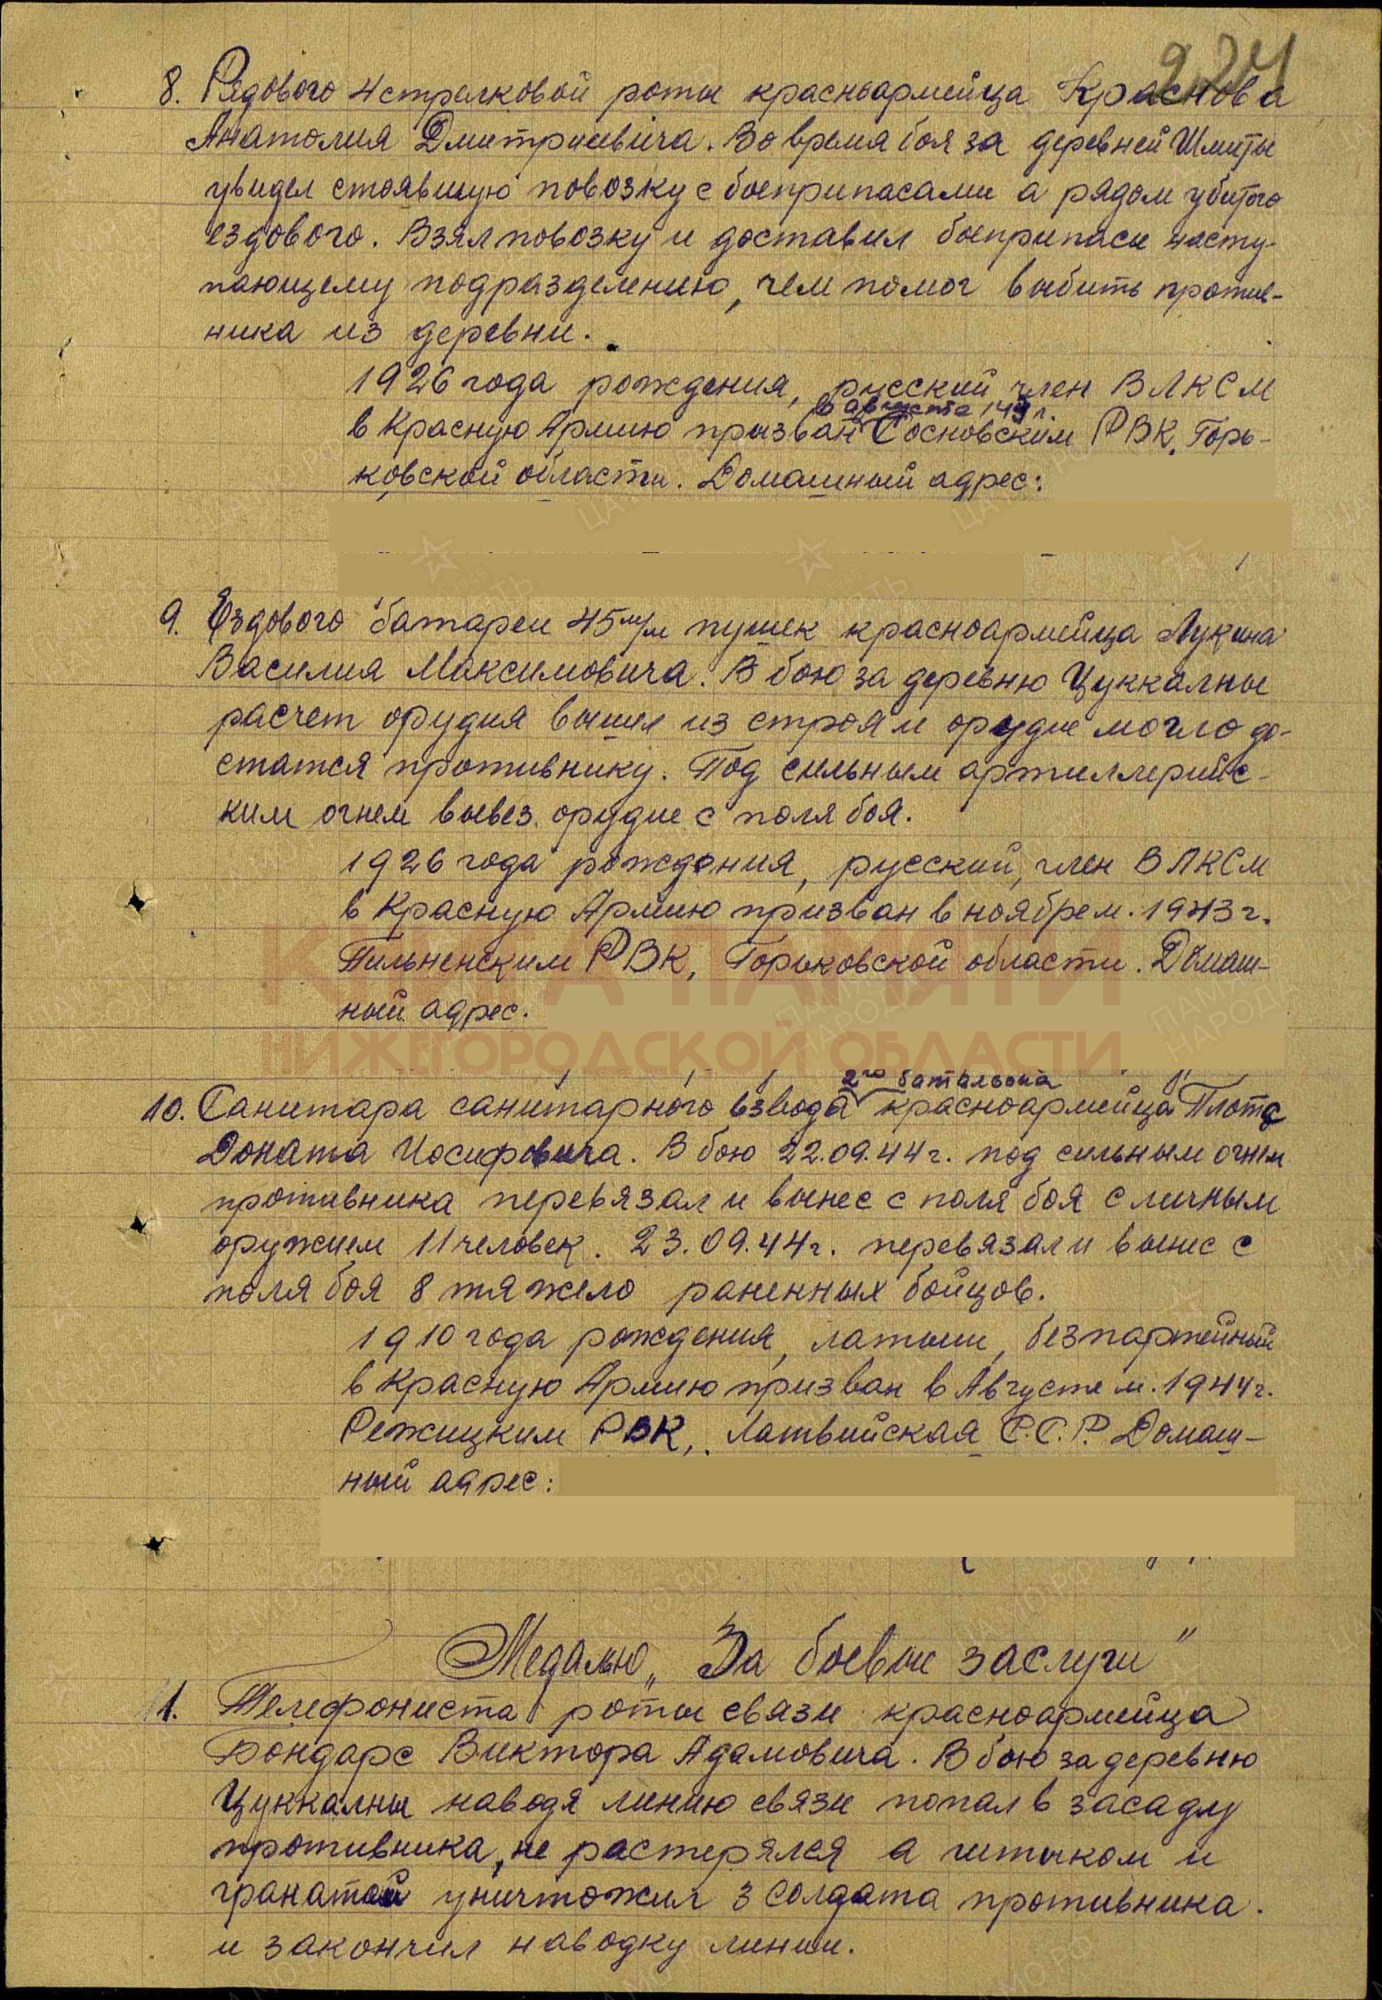 224
8. Рядового 4 стрелковой роты красноармейца Краснова
Анатолия Дмитриевича. Во время боя за деревней Шмиты
увидел стоявшую повозку с боеприпасами а рядом убитого
ездового. Взял повозку и доставил боеприпасы насту-
пающему подразделению, чем помог выбить против-
ника из деревни.
1926 года рождения, русский член ВЛКСМ
в августе 1943 г.
в Красную Армию призван Сосновским РВК, Горь-
ковской области. Домашный адрес:
9. Ездового батареи 45 м/м пушек красноармейца Лукина
Василия Максимовича. В бою за деревню Цуккалны
расчет орудия вышел из строя и орудие могло до-
статся противнику. Под сильным артиллерийс-
ким огнем вывез орудие с поля боя.
1926 года рождения, русский, член ВЛКСМ
в Красную Армию призван в ноябре м. 1943 г.
Пильненским РВК, Горьковской области. Домаш-
ный адрес.
КНИГА ПАМЯТИ
НИЖЕГОРОДСКОЙ ОБЛАСТИ
2го батальона
10. Санитара санитарного взвода красноармейца Плотс
Доната Иосифовича. В бою 22.09.44 г. под сильным огнем
противника перевязал и вынес с поля боя с личным
оружием 11 человек. 23.09.44 г. перевязал и вынес с
поля боя 8 тяжело раненных бойцов.
1910 года рождения, латыш, безпартейный
в Красную Армию призван в Августе м. 1944 г.
Режицким РВК, Латвийская С.С.Р. Домаш-
ный адрес:
Медалью „За боевые заслуги"
11. Телефониста роты связи красноармейца
Бондарс Виктора Адамовича. В бою за деревню
Цуккалны наводя линию связи попал в засаду
противника, не растерялся а штыком и
гранатой уничтожил 3 солдата противника.
и закончил наводку линии.